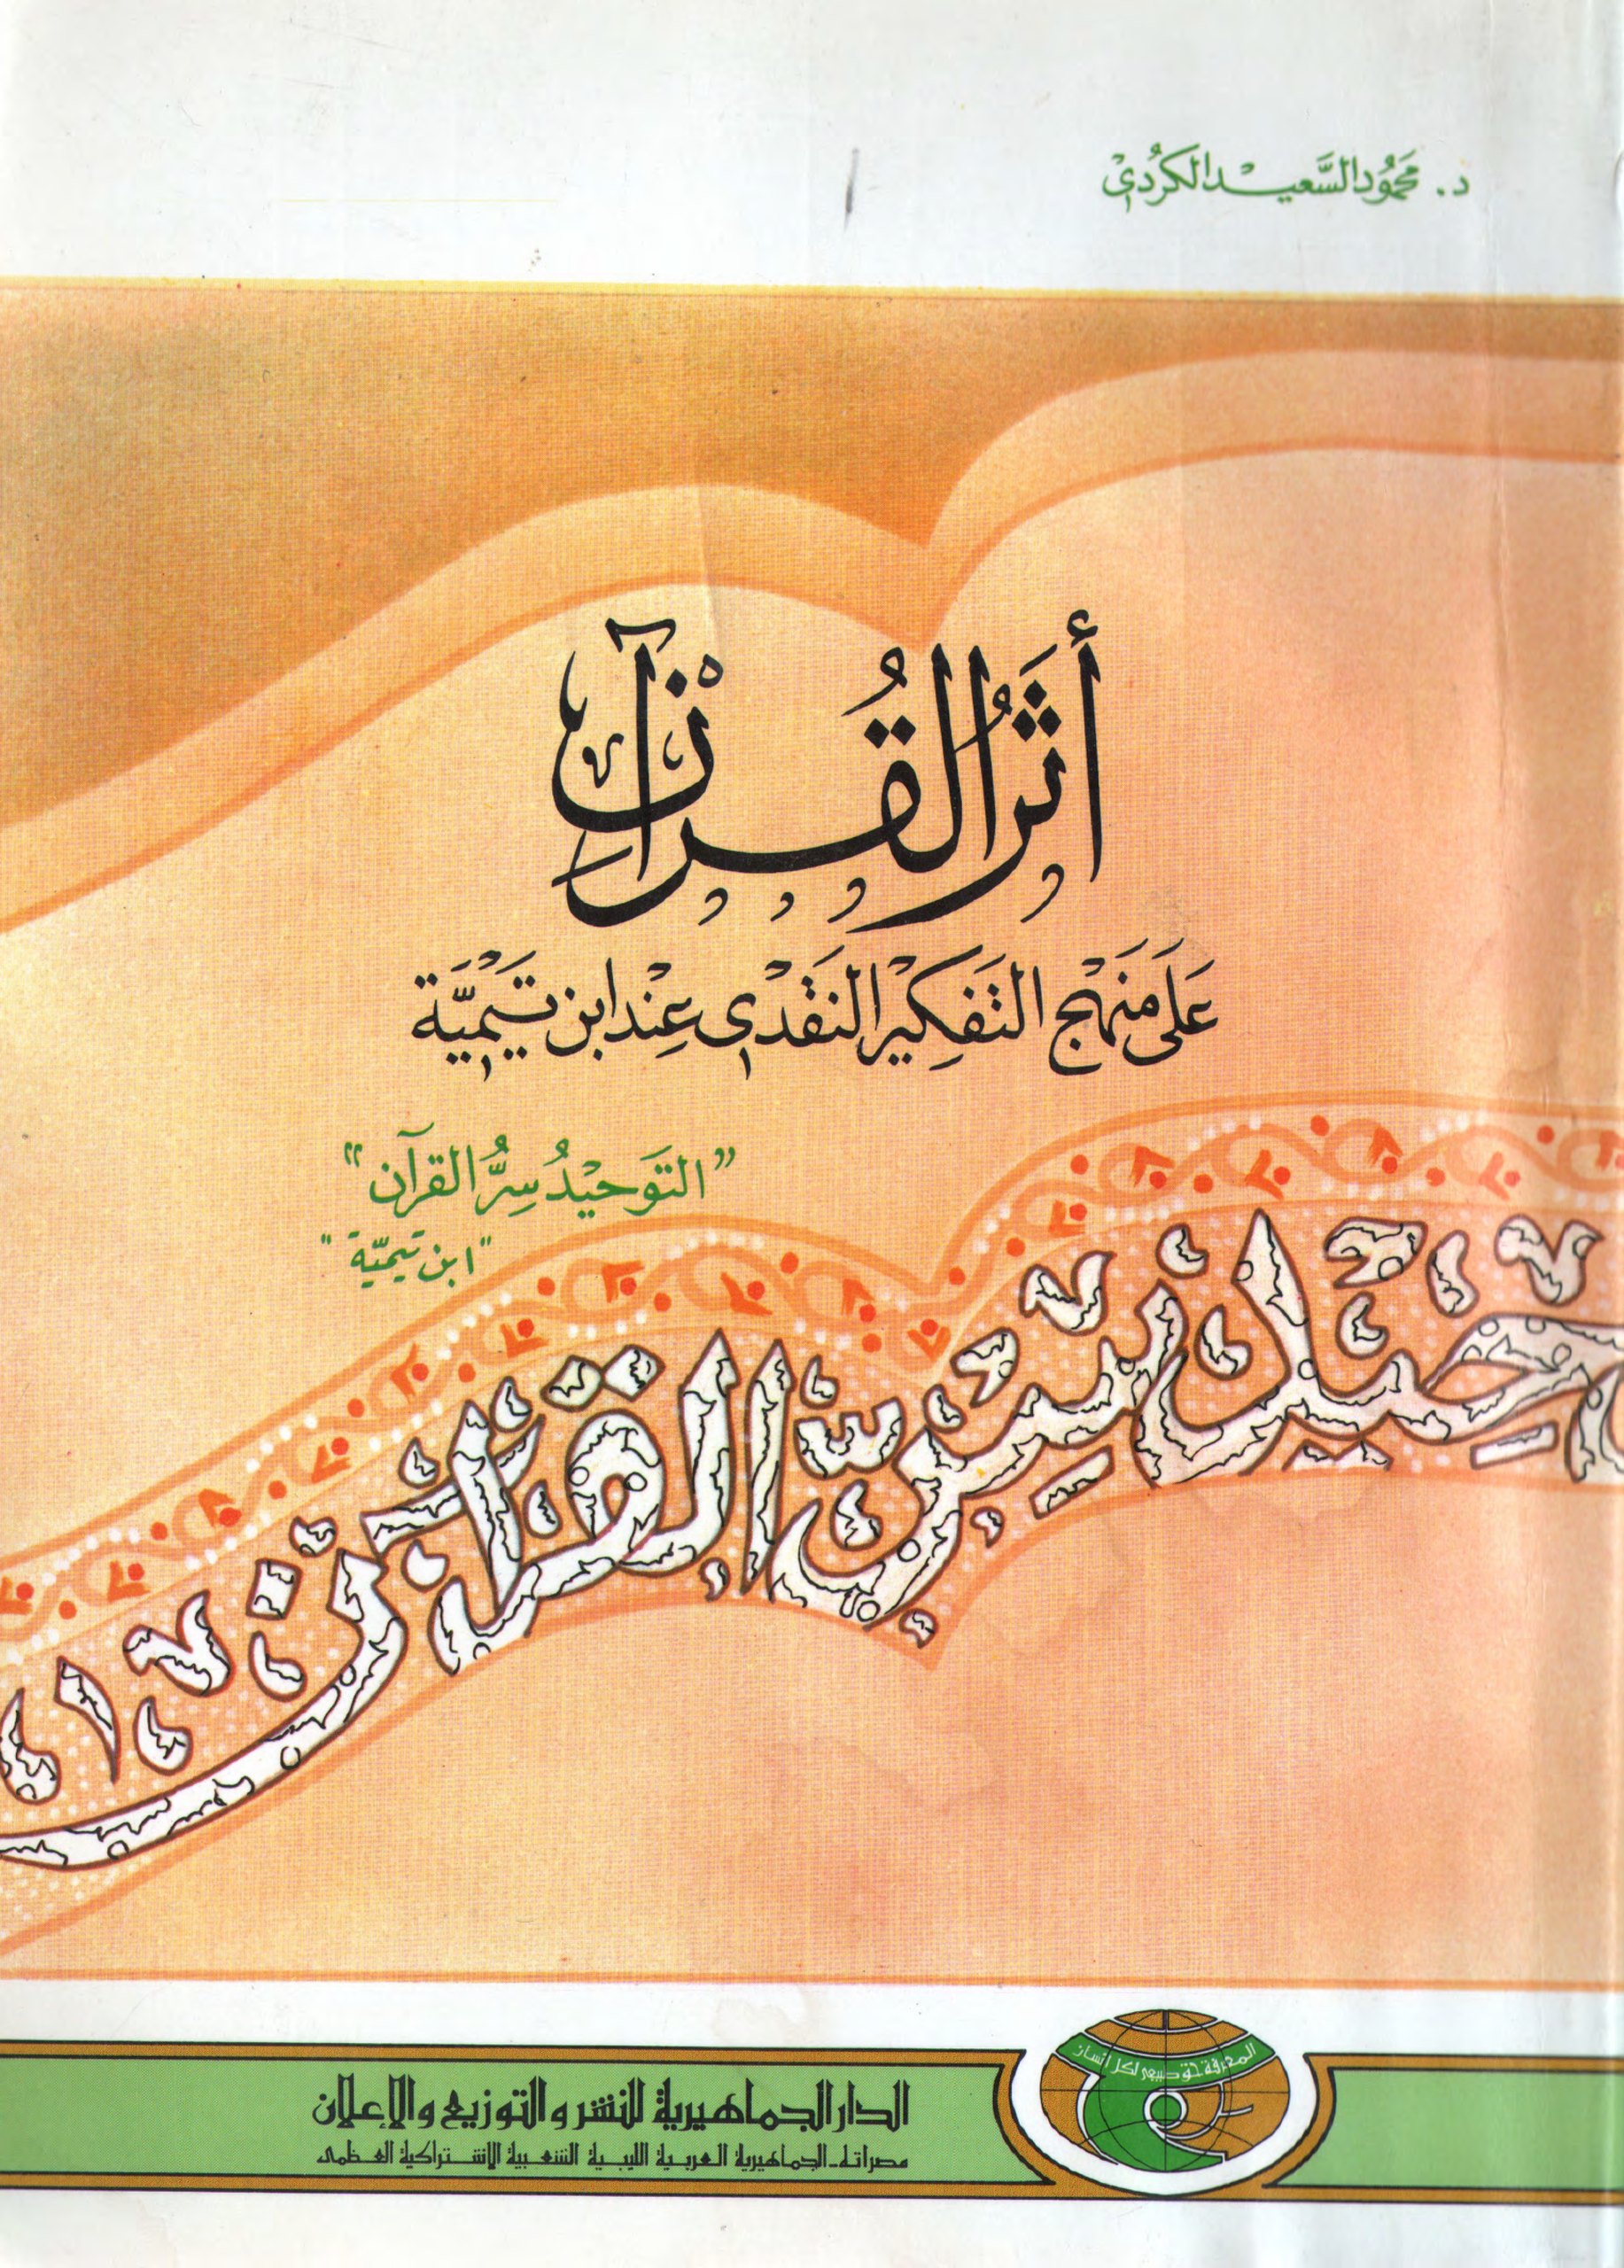 د. محمُود السَّعيد الكرُدي
أثَرُ القُرْآنِ
عَلَى مَنهَج التَفكِيْر النَقْدي عِنْد ابن تَيْميَّة
"التَوحيْدُ سِرُّ القرآن"
"ابن تيميّة"
حيد سر القرآن
المعرفة حق طبيعي لكل إنسان
الدار الجماهيرية للنشر والتوزيع والإعلان
مصراتة - الجماهيرية العربية الليبية الشعبية الاشتراكية العظمى